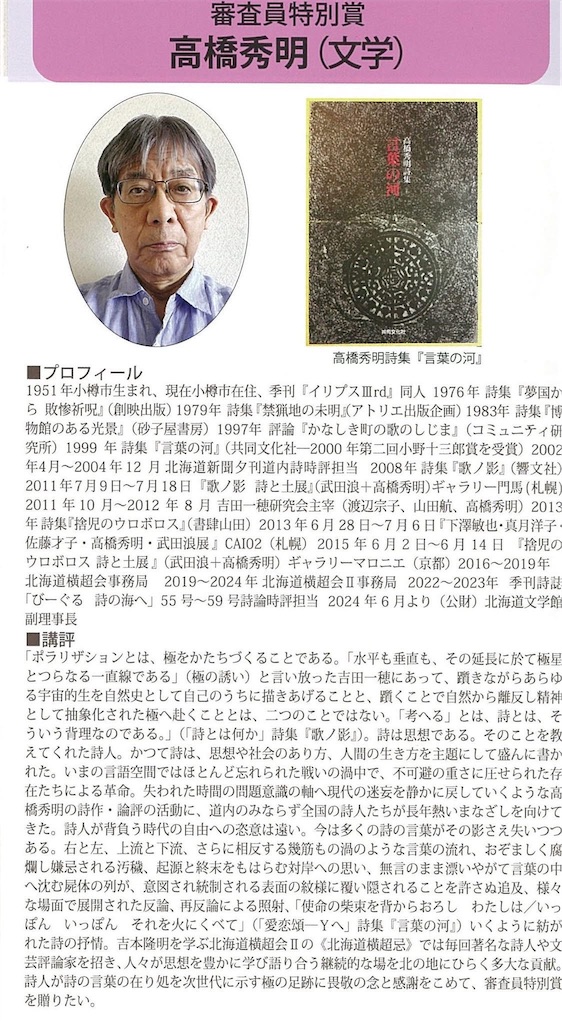 審査員特別賞
高橋秀明（文学）
高橋秀明詩集
言葉の河
共同文化社
高橋秀明詩集『言葉の河』
■プロフィール
1951年小樽市生まれ、現在小樽市在住、季刊『イリプスⅢrd』同人 1976年 詩集『夢国か
ら 敗惨祈呪』（創映出版）1979年 詩集『禁猟地の未明』（アトリエ出版企画）1983年 詩集『博
物館のある光景』（砂子屋書房）1997年 評論『かなしき町の歌のしじま』（コミュニティ研
究所）1999 年 詩集『言葉の河』（共同文化社―2000 年第二回小野十三郎賞を受賞）2002
年4月～2004年 12 月 北海道新聞夕刊道内詩時評担当　2008年 詩集『歌ノ影』（響文社）
2011年7月9日～7月18日 『歌ノ影　詩と土展』（武田浪＋高橋秀明）ギャラリー門馬（札幌）
2011 年 10 月～2012 年 8 月 吉田一穂研究会主宰（渡辺宗子、山田航、高橋秀明）2013
年 詩集『捨児のウロボロス』（書肆山田）2013 年 6 月 28 日～7 月 6 日『下澤敏也・真月洋子・
佐藤才子・高橋秀明・武田浪展 』CAI02（札幌） 2015 年 6 月 2 日～6 月 14 日 『捨児の
ウロボロス 詩と土展 』（武田浪＋高橋秀明）ギャラリーマロニエ（京都）2016～2019年
北海道横超会事務局　2019～2024年 北海道横超会Ⅱ事務局　2022～2023年 季刊詩誌
「びーぐる　詩の海へ」55 号～59 号詩論時評担当　2024 年 6 月より（公財）北海道文学館
副理事長
■講評
「ポラリザションとは、極をかたちづくることである。「水平も垂直も、その延長に於て極星
とつらなる一直線である」（極の誘い）と言い放った吉田一穂にあって、躓きながらあらゆ
る宇宙的生を自然史として自己のうちに描きあげることと、躓くことで自然から離反し精神
として抽象化された極へ赴くこととは、二つのことではない。「考へる」とは、詩とは、そ
ういう背理なのである。」（「詩とは何か」詩集『歌ノ影』）。詩は思想である。そのことを教
えてくれた詩人。かつて詩は、思想や社会のあり方、人間の生き方を主題にして盛んに書か
れた。いまの言語空間ではほとんど忘れられた戦いの渦中で、不可避の重さに圧せられた存
在たちによる革命。失われた時間の問題意識の軸へ現代の迷妄を静かに戻していくような高
橋秀明の詩作・論評の活動に、道内のみならず全国の詩人たちが長年熱いまなざしを向けて
きた。詩人が背負う時代の自由への恣意は遠い。今は多くの詩の言葉がその影さえ失いつつ
ある。右と左、上流と下流、さらに相反する幾筋もの渦のような言葉の流れ、おぞましく腐
爛し嫌忌される汚穢、起源と終末をもはらむ対岸への思い、無言のまま漂いやがて言葉の中
へ沈む屍体の列が、意図され統制される表面の紋様に覆い隠されることを許さぬ追及、様々
な場面で展開された反論、再反論による照射、「使命の柴束を背からおろし　わたしは／いっ
ぽん　いっぽん　それを火にくべて」（「愛恋頌―Ｙへ」詩集『言葉の河』）いくように紡が
れた詩の抒情。吉本隆明を学ぶ北海道横超会Ⅱの《北海道横超忌》では毎回著名な詩人や文
芸評論家を招き、人々が思想を豊かに学び語り合う継続的な場を北の地にひらく多大な貢献。
詩人が詩の言葉の在り処を次世代に示す極の足跡に畏敬の念と感謝をこめて、審査員特別賞
を贈りたい。